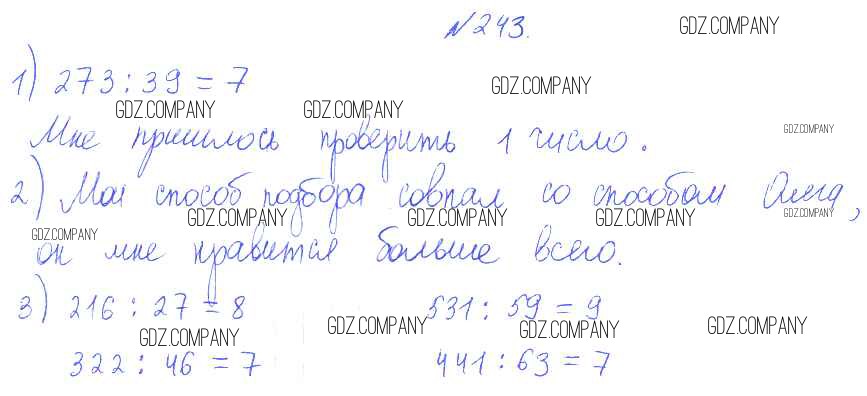 №243. GDZ.COMPANY
1) 273 : 39 = 7 GDZ.COMPANY
GDZ.COMPANY GDZ.COMPANY
Мне пришлось проверить 1 число. GDZ.COMPANY
2) Мой способ подбора совпал со способом Олега,
GDZ.COMPANY GDZ.COMPANY GDZ.COMPANY GDZ.COMPANY
GDZ.COMPANY
он мне нравится больше всего.
3) 216 : 27 = 8 531 : 59 = 9
GDZ.COMPANY GDZ.COMPANY GDZ.COMPANY GDZ.COMPANY
322 : 46 = 7 441 : 63 = 7